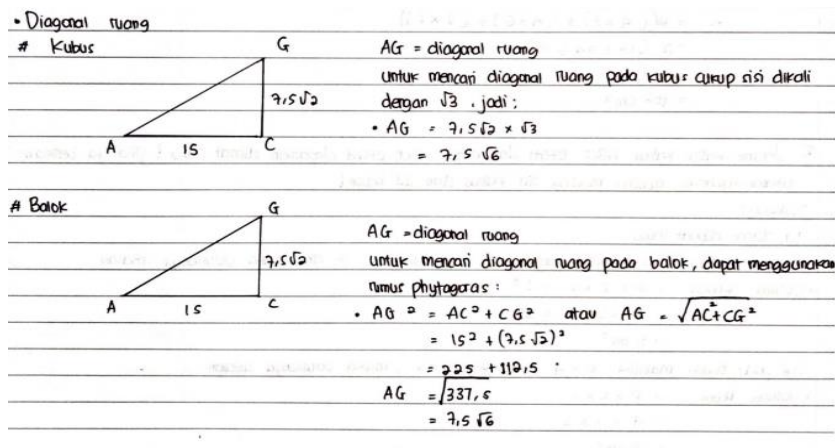 • Diagonal ruang
# Kubus
G
7,5√2
A 15 C
AG = diagonal ruang
untuk mencari diagonal ruang pada kubus cukup sisi dikali
dengan √3 . jadi :
• AG = 7,5√2 x √3
= 7,5 √6
# Balok
G
7,5√2
A 15 C
AG = diagonal ruang
untuk mencari diagonal ruang pada balok, dapat menggunakan
rumus phytagoras :
• AG ² = AC² + CG² atau AG = √AC²+CG²
= 15² + (7,5 √2)²
= 225 + 112,5
AG = √337,5
= 7,5 √6